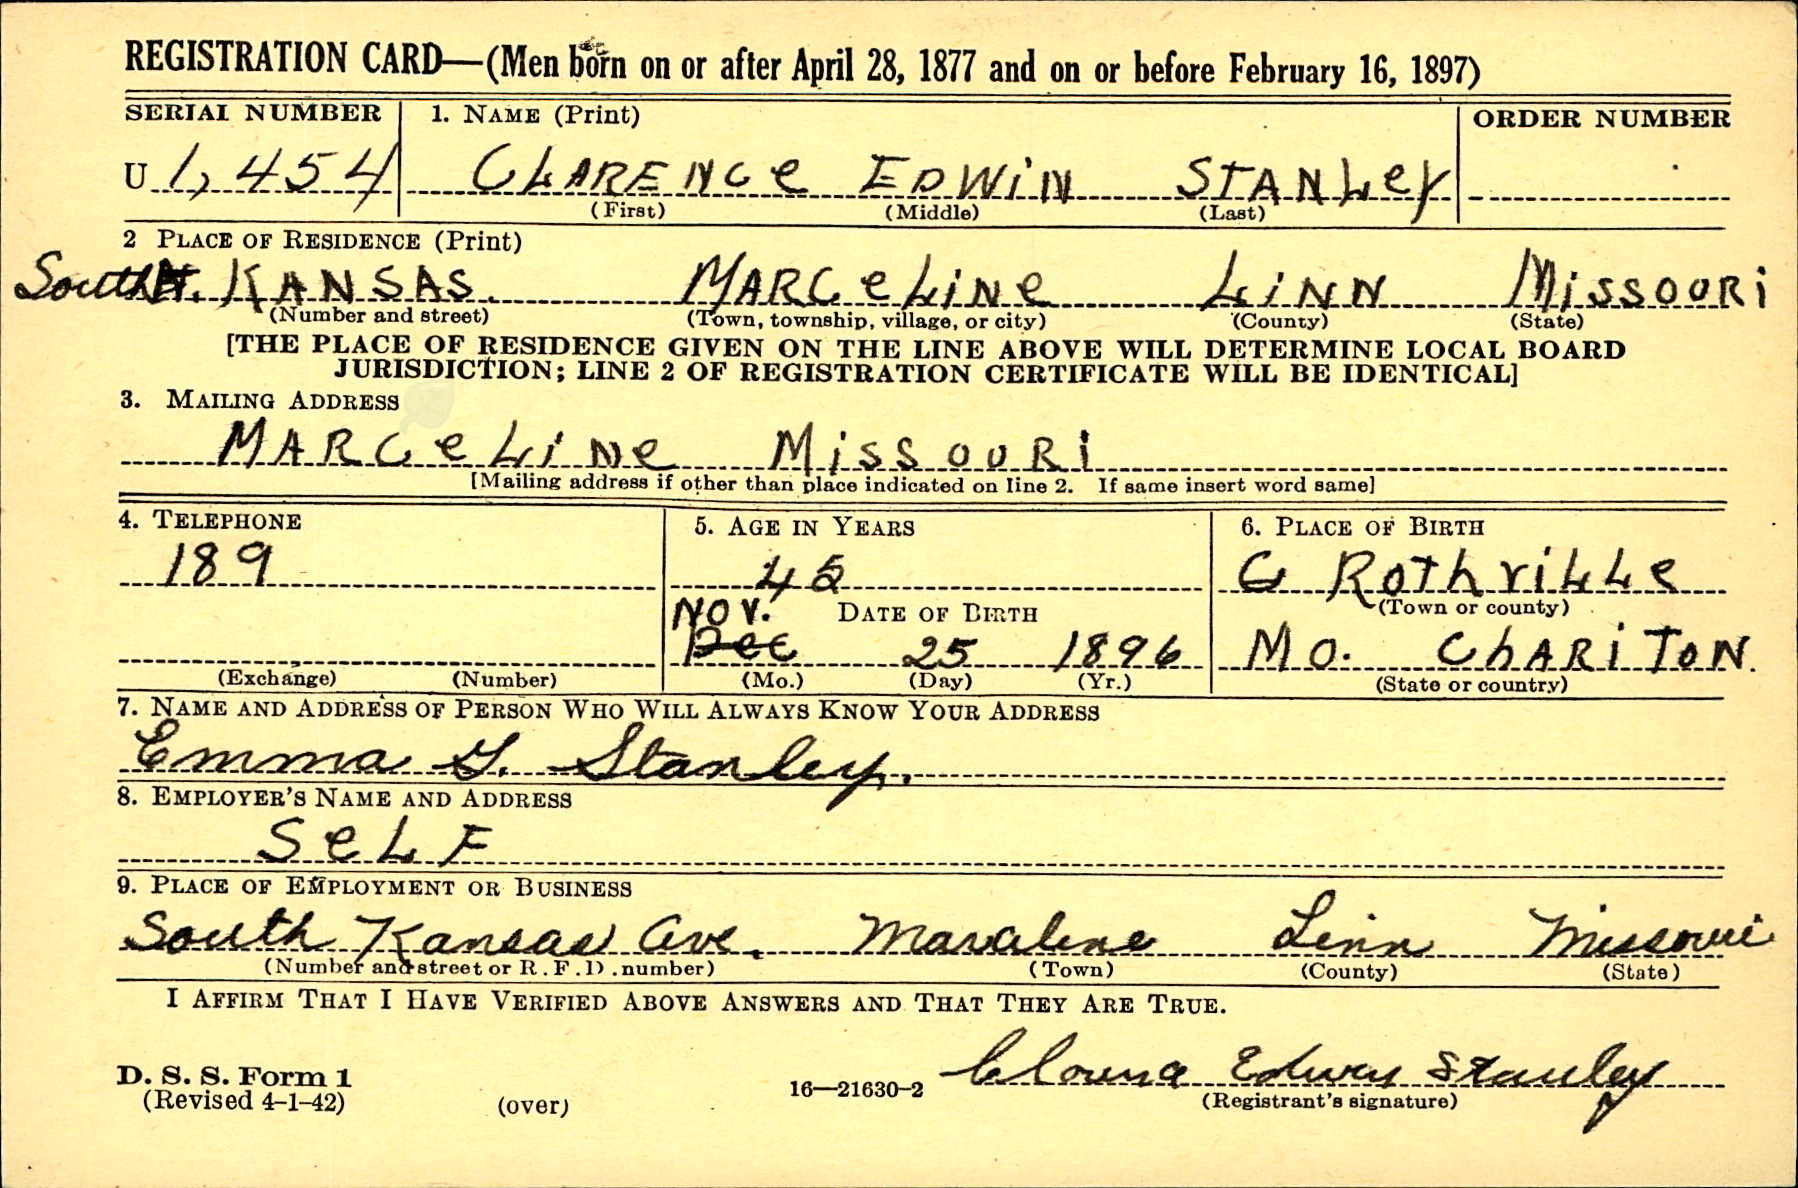 REGISTRATION CARD—(Men born on or after April 28, 1877 and on or before February 16, 1897)
SERIAL NUMBER 1. NAME (Print) ORDER NUMBER
U 1,454 CLARENCe EDWiN STANLey
(First) (Middle) (Last)
2 PLACE OF RESIDENCE (Print)
South KANSAS. MARCeLiNe LiNN MissouRi
(Number and street) (Town, township, village, or city) (County) (State)
[THE PLACE OF RESIDENCE GIVEN ON THE LINE ABOVE WILL DETERMINE LOCAL BOARD
JURISDICTION; LINE 2 OF REGISTRATION CERTIFICATE WILL BE IDENTICAL]
3. MAILING ADDRESS
MARCeLiNe MissouRi
[Mailing address if other than place indicated on line 2. If same insert word same]
4. TELEPHONE 5. AGE IN YEARS 6. PLACE OF BIRTH
189 45 RoThviLLe
(Town or county)
NOV. DATE OF BIRTH
Dec 25 1896 MO. ChARiToN.
(Exchange) (Number) (Mo.) (Day) (Yr.) (State or country)
7. NAME AND ADDRESS OF PERSON WHO WILL ALWAYS KNOW YOUR ADDRESS
Emma G. Stanley.
8. EMPLOYER'S NAME AND ADDRESS
SeLF
9. PLACE OF EMPLOYMENT OR BUSINESS
South Kansas Ave. Marceline Linn Missouri
(Number and street or R.F.D. number) (Town) (County) (State)
I AFFIRM THAT I HAVE VERIFIED ABOVE ANSWERS AND THAT THEY ARE TRUE.
D. S. S. Form 1
(Revised 4-1-42) (over) 16—21630-2 Edwin Stanley
(Registrant's signature)